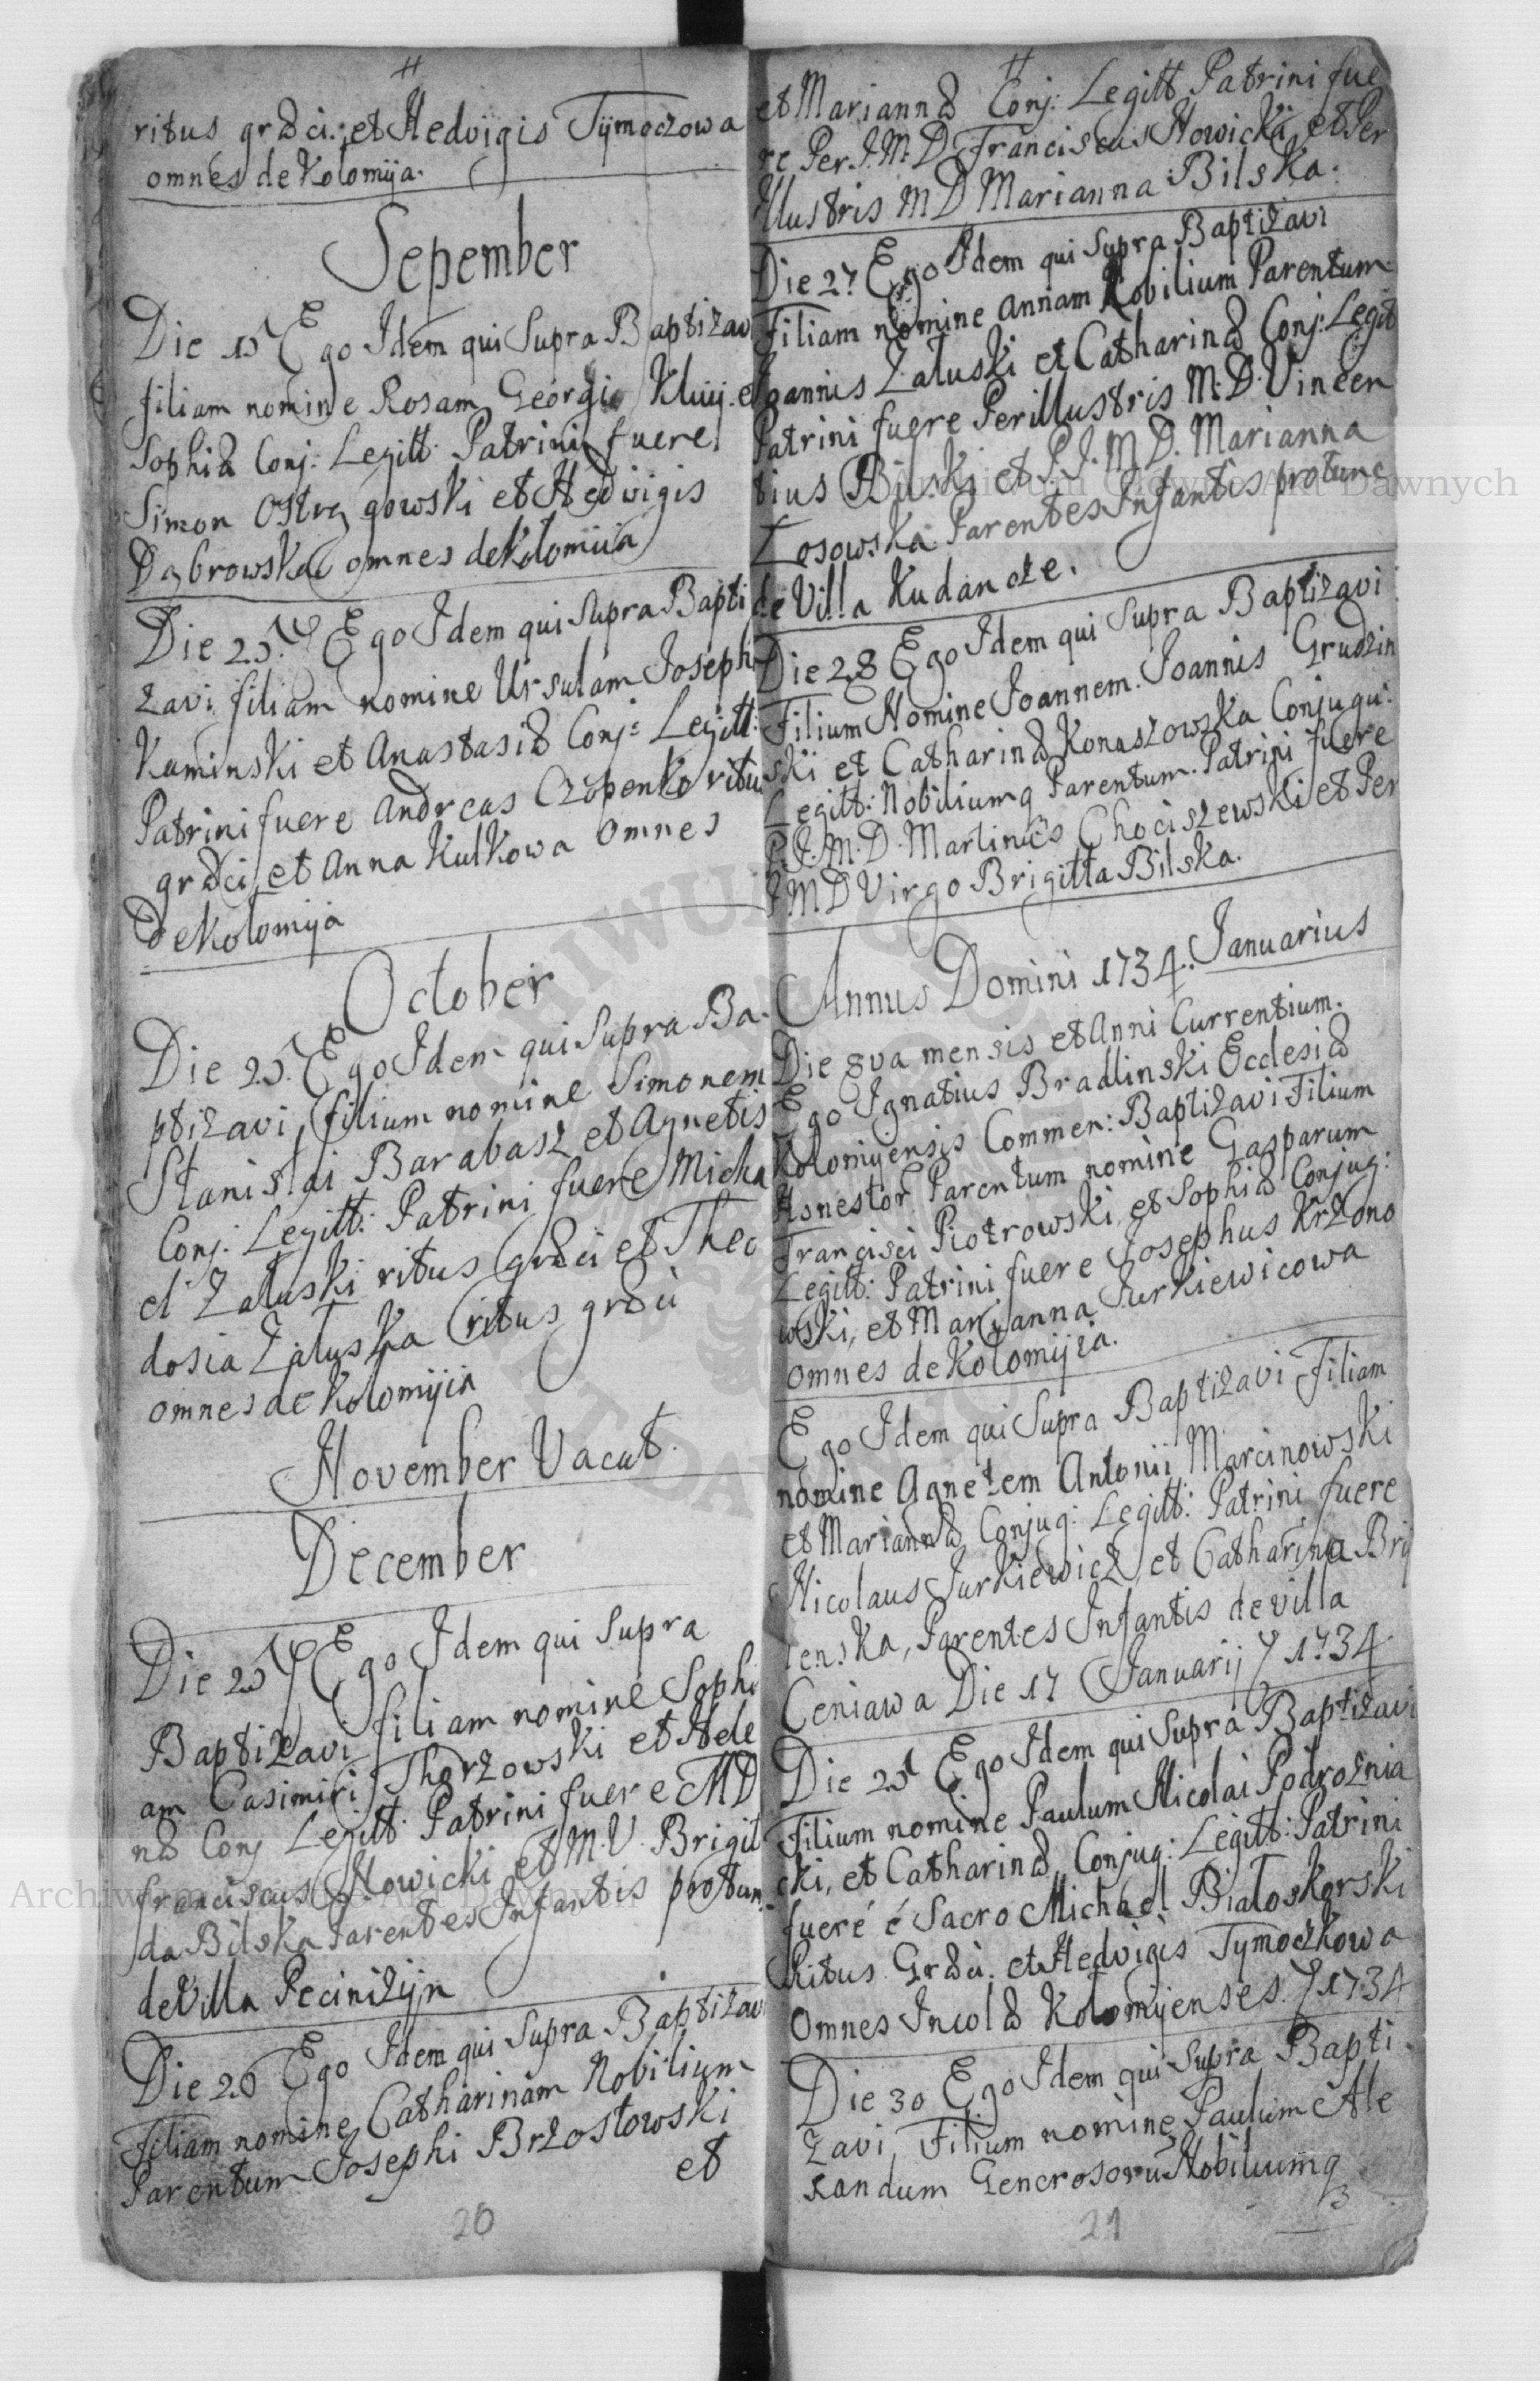 ritus græci: et Hedvigis Tymoczowa
omnes de Kolomija.
Sepember
Die 15 Ego Idem qui Supra Baptizavi
filiam nomine Rosam Georgii Kluij. et
Sophiæ Conj: Legitt: Patrini fuere
Simon Ostrzgowski et Hedvigis
Dąbrowska omnes de Kolomiia
Die 25. Ego Idem qui Supra Bapti
zavi filiam nomine Ursulam Josephi
Kaminski et Anastasiæ Conj: Legitt:
Patrini fuere Andreas Czopenko ritus
græci et Anna Kulkowa omnes
de Kolomija
October
Die 25. Ego Idem qui Supra Ba-
ptizavi, filium nomine Simonem
Stanislai Barabasz et Agnetis
Conj. Legitt: Patrini fuere Micha
el Załuski ritus græci et Theo
dosia Załuska ritus græci
omnes de Kolomyia
November Vacat.
December
Die 25 Ego Idem qui Supra
Baptizavi filiam nomine Sophi
am Casimiri Thorzowski et Hele
næ Conj Legitt: Patrini fuere MD
franciscus Nowicki et M.V. Brigit
da Bilska Parentes Infantis protunc
de Villa Peciniżyn
Die 26 Ego Idem qui Supra Baptizavi
Filiam nomine Catharinam Nobilium
Parentum Josephi Brzostowski
et
20
et Mariannæ Conj: Legitt Patrini fue
re Per. I. M. D. Franciscus Nowicki, et Per
Illustris M D Marianna Bilska.
Die 27 Ego Idem qui Supra Baptizavi
Filiam nomine Annam Nobilium Parentum
Joannis Załuski et Catharinæ Conj: Legit
Patrini fuere Perillustris M. D. Vincen
tius Bilski et P. I. M D. Marianna
Łosowska Parentes Infantis protunc
de Villa Kudancze.
Die 28 Ego Idem qui Supra Baptizavi
Filium Nomine Joannem. Joannis Grudzin
ski et Catharinæ Konaszowska Conjugu:
Legitt: Nobiliumq Parentum. Patrini fuere
P. I. M. D. Martinus Chociszewski et Per
I M D Virgo Brigitta Bilska.
Annus Domini 1734. Januarius
Die 8va mensis et Anni Currentium.
Ego Ignatius Bradlinski Ecclesiæ
Kolomyensis Commen: Baptizavi Filium
Honestor Parentum nomine Gasparum
Francisci Piotrowski, et Sophiæ Conjug:
Legitt: Patrini fuere Josephus Krzono
wski, et Marianna Jurkiewicowa
omnes de Kolomijia.
Ego Idem qui Supra Baptizavi Filiam
nomine Agnetem Antonii Marcinowski
et Mariannæ Conjug: Legitt: Patrini fuere
Nicolaus Jurkiewicz et Catharina Bry
lenska, Parentes Infantis de villa
Ceniawa Die 17 Januarij 1734
Die 25 Ego Idem qui Supra Baptizavi
Filium nomine Paulum Nicolai Podrożnia
cki, et Catharinæ Conjug: Legitt: Patrini
fueré é Sacro Michael Białoskorski
Ritus Græci. et Hedvigis Tymoczkowa
Omnes Incolæ Kolomyenses. 1734
Die 30 Ego Idem qui Supra Bapti
zavi, Filium nomine Paulum Ale
xandum Generosoru Nobiliumq
3
21
Archiwum Główne Akt Dawnych
Archiwum Główne Akt Dawnych